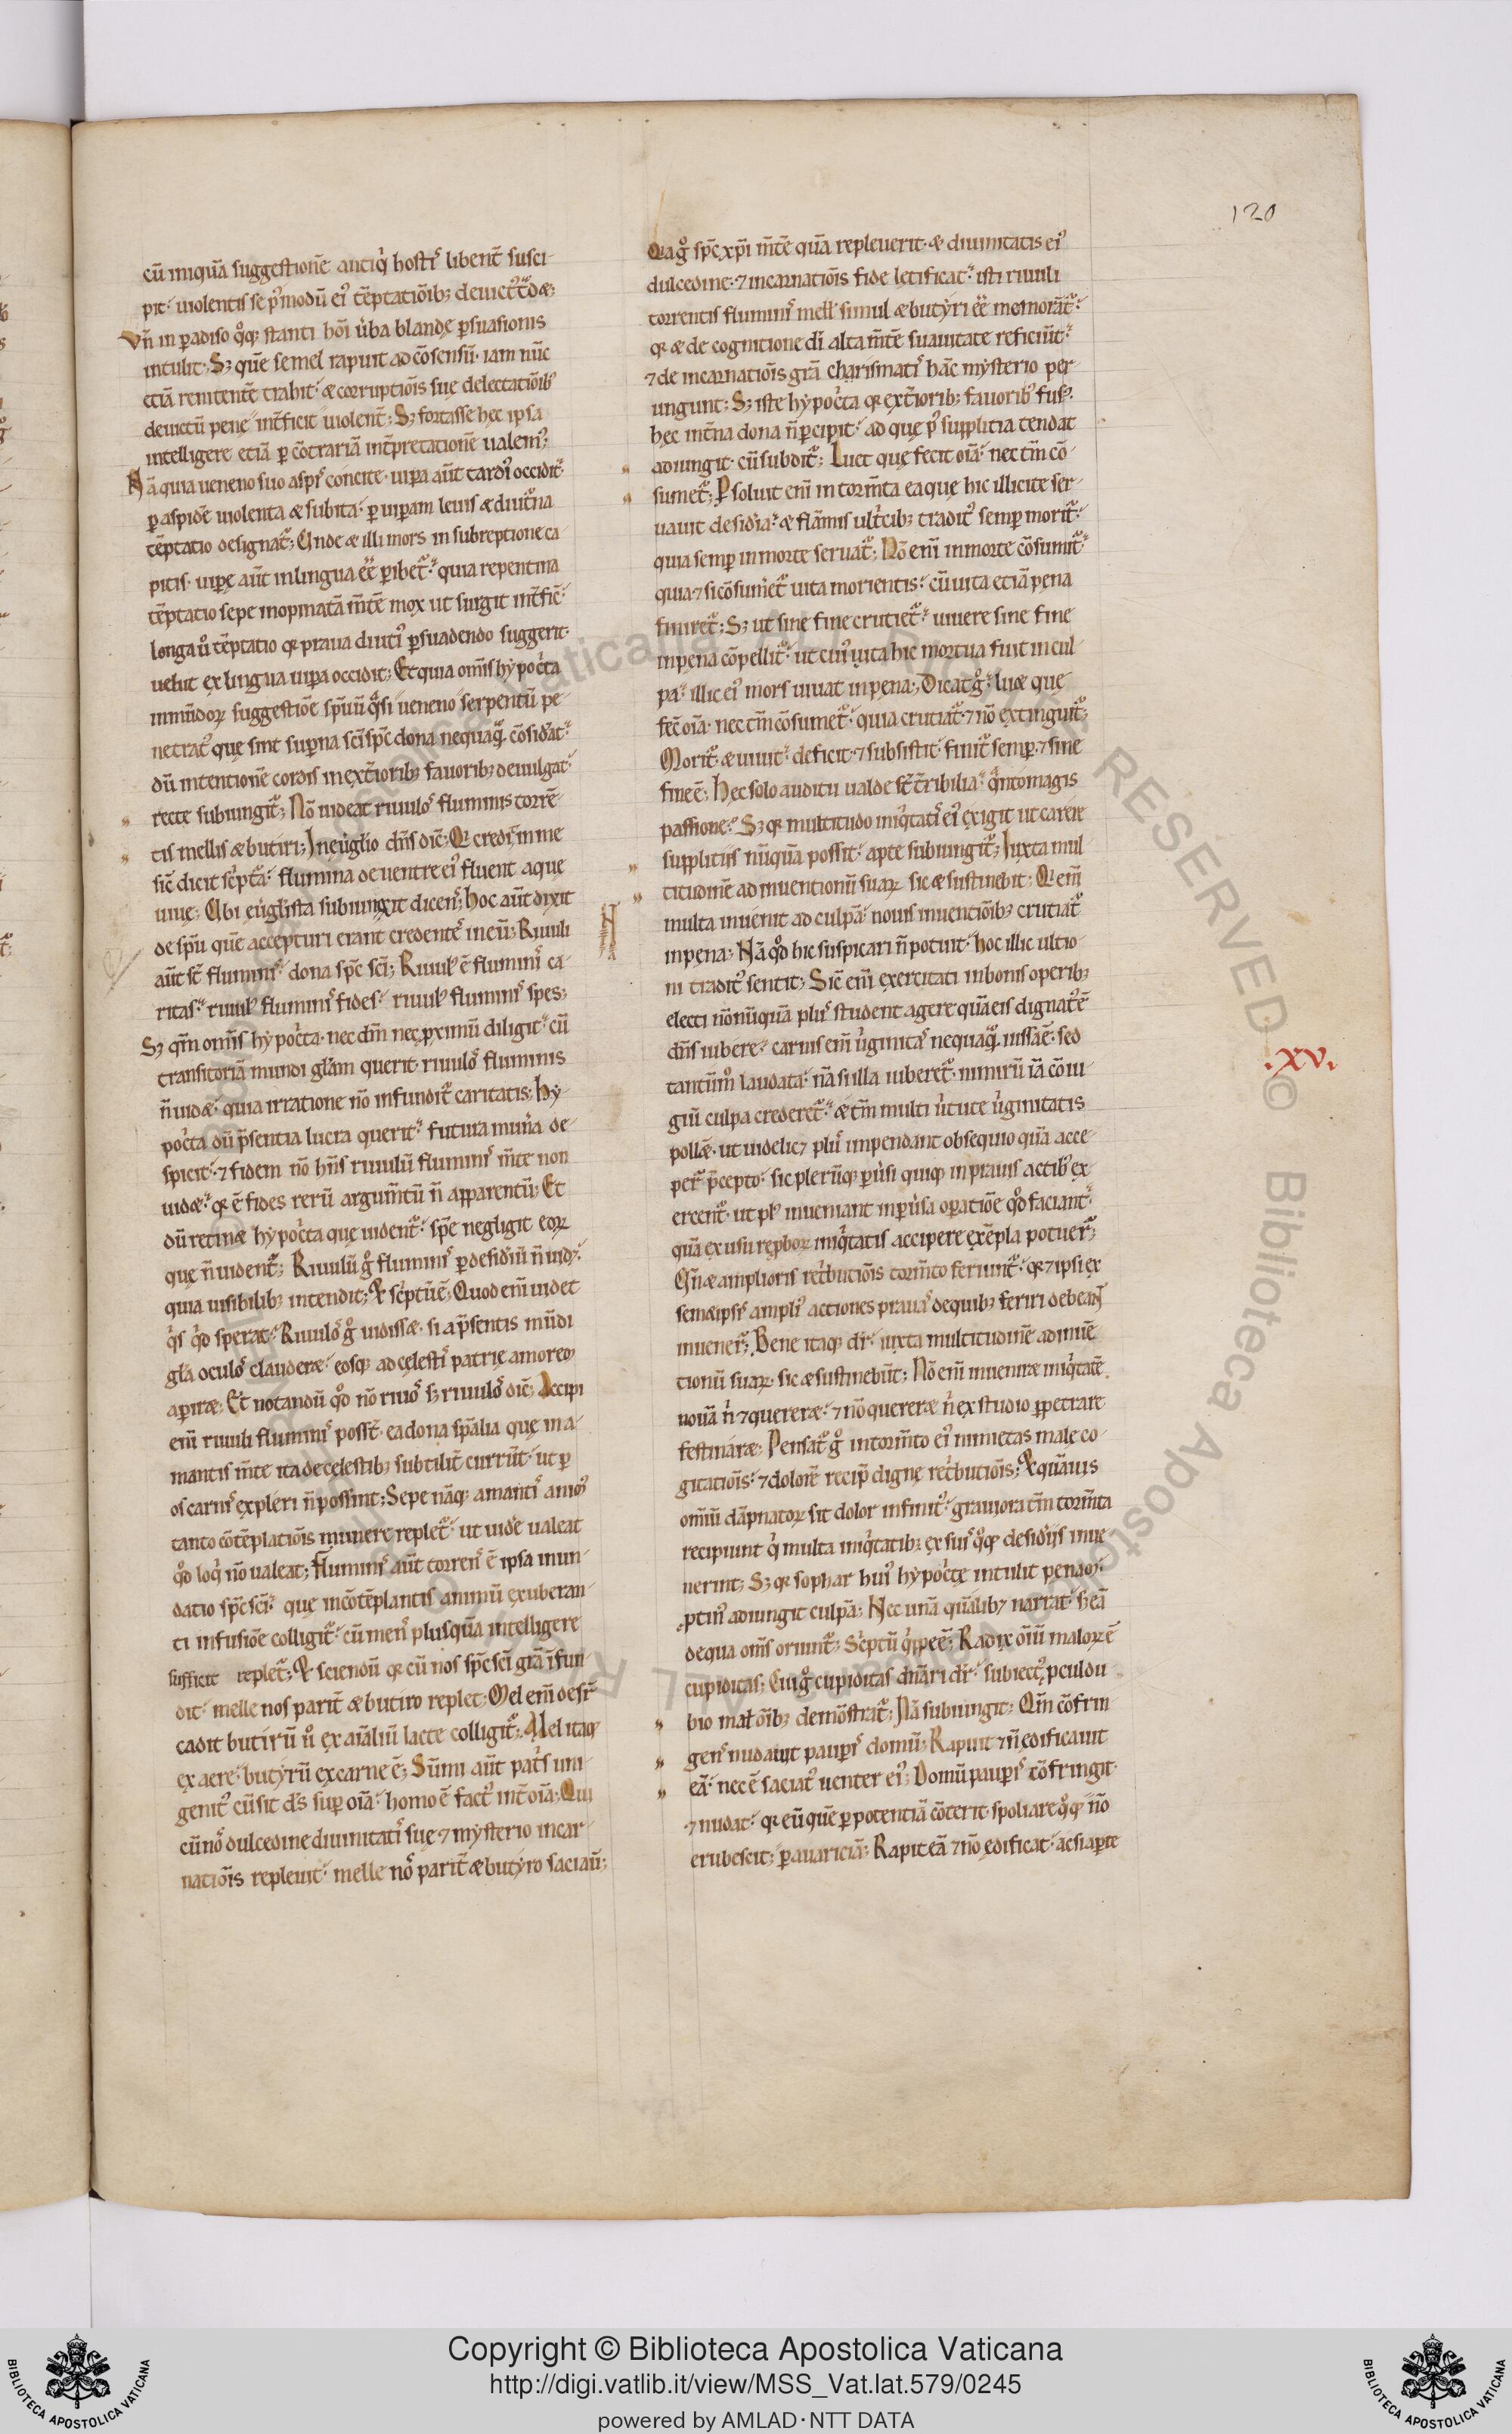 120
cū iniquā suggestionē antiq̇ hostis̉ libent̄ susci-
pit· uiolentis se p᷒ modū ei᷒ tēptatiōib; deuict᷒ t̄dæ;
Vn̄ in paradiso q̊q; stanti hōi ůba blandę psuasionis
intulit; Sꝫ quē semel rapuit ad cōsensū· iam nūc
etiā renitentē trahit· æ corruptiōis suę delectatiōib᷒
deuictū penę int̄ficit uiolent̄; Sꝫ fortasse hęc ipsa
intelligere etiā p cōtrariā int̄pretationē ualem᷒;
Nā quia ueneno suo aspis̉ concite· uipa aūt tardi᷒ occidit·
p aspidē uiolenta æ subita· p uipam leuis æ diut̉na
tēptatio designat̃; Unde æ illi mors in subreptione ca
pitis· uipę aūt in lingua eē pibet̃· quia repentina
tēptatio sepe inopinatā m̄tē mox ut surgit int̄fic̄·
longa ů tēptatio qꝛ praua diuti᷒ psuadendo suggerit·
uelut ex lingua uipa occidit; Et quia om̄is hypoc̉ta
inmūdoꝝ suggestiōe sp̄uū q̊si ueneno serpentū pe
netrat᷒ quę sint supna sc̄i sp̄c dona nequaq̃· cōsid̉at·
dū intentionē cordis in ext̉ioribꝫ fauoribꝫ deuulgat·
recte subiungit̃; Nō uideat riuulos̉ fluminis torrē-
tis mellis æ butiri; In eu̇glio dn̄s dic̄; Qui credit in me
sic̄ dicit sc̉pt̄a· flumina de uentre ei᷒ fluent aquę
uiuę; Ubi eu̇glista subiunxit dicens̉; Hoc aūt dixit
de sp̄u quē accepturi erant credentes̉ in eū; Riuuli
aūt st̄ fluminis̉· dona sp̄c sc̄i; Riuul᷒ ē fluminis̉ ca-
ritas· riuul᷒ fluminis̉ fides· riuul᷒ fluminis̉ spes;
Sꝫ qm̄ om̄is hypoc̉ta· nec dm̄ nec pximū diligit· cū
transitoriā mundi gl̄am querit· riuulos̉ fluminis
n̄ uidæ· quia irratione nō infundit̃ caritatis; Hy-
poc̉ta dū p̄sentia lucra querit· futura mun̉a de-
spicit· ⁊ fidem nō hn̄s riuulū fluminis̉ m̄te non
uidæ· qꝛ ē fides rerū argum̄tū n̄ apparentū; Et
dū retinæ hypoc̉ta que uident̃· spē negligit eoꝝ
quę n̄ uident̃; Riuulū g̊ fluminis̉ p desid̉iū n̄ uidꝫ·
quia uisibilibꝫ intendit; Et sc̉ptū ē; Quod enī uidet
q̇s q̇d sperat· Riuulos̉ g̊ uidissæ· si a p̄sentis mūdi
gl̄a oculos̉ clauderæ· eosq; ad celestis̉ patrię amorem
apiræ; Et notandū qđ nō riuos̉ sꝫ riuulos̉ dic̄; Accipi
enī riuuli fluminis̉ posst̄· ea dona sp̄alia quę in a-
mantis m̄te ita de celestibꝫ subtilit̄ currūt· ut p
os carnis̉ expleri n̄ possint; Sepe nāq; amantis̉ anim᷒
tanto cōtēplatiōis munere replet̃· ut uid̉e ualeat
qđ loq̇ nō ualeat; Fluminis̉ aūt torrens̉ ē ipsa inun-
datio sp̄c sc̄i· quę in cōtēplantis animū exuberan-
ti infusiōe colligit̃· cū mens̉ plusquā intelligere
sufficit replet̃; Et sciendū qꝛ cū nos sp̄c sc̄i gr̄a īfun
dit· melle nos parit̄ æ butiro replet; Mel enī desr̄
cadit butirū ů ex aīaliū lacte colligit̃; Mel itaq;
ex aere· butyrū ex carne ē; Sūmi aūt pat̉s uni-
genit᷒ cū sit ds̄ sup oīa· homo ē fact᷒ int̄ oīa; Qui
cū nos̉ dulcedine diuinitatis̉ suę ⁊ mysterio incar-
natiōis repleuit· melle nos̉ parit̄ æ butyro saciaū;
N
Quia g̊ sp̄c xp̄i m̄tē quā repleuerit· æ diuinitatis ei᷒
dulcedine· ⁊ incarnatiōis fide letificat· isti riuuli
torrentis fluminis̉ mell̉ simul æ butyri eē memorāt̃·
qꝛ æ de cognitione di᷒ alta m̄tē suauitate reficiūt·
⁊ de incarnatiōis gr̄a charismatis̉ hāc mysterio per-
ungunt; Sꝫ iste hypoc̉ta qꝛ ext̉ioribꝫ fauorib᷒ fus᷒·
hęc int̄na dona n̄ pcipit· ad quę p᷒ supplitia tendat
adiungit· cū subdit̃; Luet quę fecit oīa· nec tm̄ cō-
sumet̃; Psoluit enī in torm̄ta ea quę hic illicite ser-
uauit desid̉ia· æ flāmis ult̉cibꝫ tradit᷒ semp morit̃·
quia semp in morte seruat̃; Nō enī in morte cōsumit̃·
quia ⁊ si cōsumet̃ uita morientis· cū uita etiā pena
finiret̃; Sꝫ ut sine fine crutiet̃· uiuere sine fine
in pena cōpellit̃· ut cui᷒ uita hic mortua fuit in cul
pa· illic ei᷒ mors uiuat in pena; Dicat g̊· luæ quę
fec̄ oīa· nec tm̄ cōsumet̃· quia crutiat̃· ⁊ nō extinguit̃;
Morit̃· æ uiuit· deficit· ⁊ subsistit· finit̃ semp· ⁊ sine
fine ē; Hęc solo auditu ualde st̄ t̄ribilia· q̊nto magis
passione; Sꝫ qꝛ multitudo iniq̇tatis̉ ei᷒ exigit ut carere
supplitiis nūquā possit· apte subiungit̃; Iuxta mul
titudinē adinuentionū suaꝝ sic æ sustinebit; Qui enī
multa inuenit ad culpā· nouis inuentiōibꝫ crutiat̃
in pęna; Nā qđ hic suspicari n̄ potuit· hoc illic ultio-
ni tradit᷒ sentit; Sic̄ enī exercitati in bonis operibꝫ
electi nōnūquā plus̉ student agere quā eis dignat᷒ ē
dn̄s iubere· carnis enī ůginitas̉ nequaq̃· iussa ē· sed
tantūm̊ laudata· nā si illa iuberet̃· nimirū iā cōiu-
giū culpa crederet̃· æ tm̄ multi ůtute ůginitatis
pollēt· ut uidelicꝫ plus̉ impendant obsequio quā acce-
per̄ p̄cepto· sic plerūq; půsi quiq; in prauis actib᷒ ex-
ercent̃· ut pl᷒ inueniant in půsa opatiōe qđ faciant·
quā ex usu repboꝝ iniq̇tatis accipere exēpla potuer̄;
Un̄ æ amplioris ret̉butiōis torm̄to feriunt̃· qꝛ ⁊ ipsi ex
semæipsis̉ ampli᷒ actiones prauas̉ de quibꝫ feriri debeant̄
inuener̄; Bene itaq; dr̄· iuxta multitudinē adinuē
tionū suaꝝ· sic æ sustinebūt; Nō enī inueniræ iniq̇tatē
nouā n̉ ⁊ quereræ· ⁊ nō quereræ n̉ ex studio ppetrare
festinaræ; Pensat̃ g̊ in torm̄to ei᷒ nimietas malę co-
gitatiōis· ⁊ dolorē recip̄ dignę ret̉butiōis; Et quāuis
om̄iū dāpnatoꝝ sit dolor infinit᷒· grauiora tm̄ torm̄ta
recipiunt q̇ multa iniq̇tatibꝫ ex suis̉ q̊q; desid̉iis inue
nerint; Sꝫ qꝛ sophar hui᷒ hypoc̉tę intulit penam·
ptin᷒ adiungit culpā; Nec unā quālibꝫ narrat· sꝫ eā
de qua om̄s oriunt̃; Sc̉ptū q̇ppe ē; Radix oīū maloꝝ ē
cupiditas; Cui g̊ cupiditas dn̄ari dr̄· subiect᷒ pculdu
bio mał oīibꝫ demōstrat̃; Nā subiungit; Qm̄ cōfrin
gens̉ nudauit paupis̉ domū; Rapuit ⁊ n̄ edificauit
eā· nec ē saciat᷒ uenter ei᷒; Domū paupis̉ cōfringit·
⁊ nudat· qꝛ eū quē p potentiā cōterit· spoliare q̊q; nō
erubescit· p auariciā; Rapit eā ⁊ nō edificat· ac si apte
.XV.
Copyright © Biblioteca Apostolica Vaticana
http://digi.vatlib.it/view/MSS_Vat.lat.579/0245
powered by AMLAD·NTT DATA
BIBLIOTECA APOSTOLICA VATICANA
BIBLIOTECA APOSTOLICA VATICANA